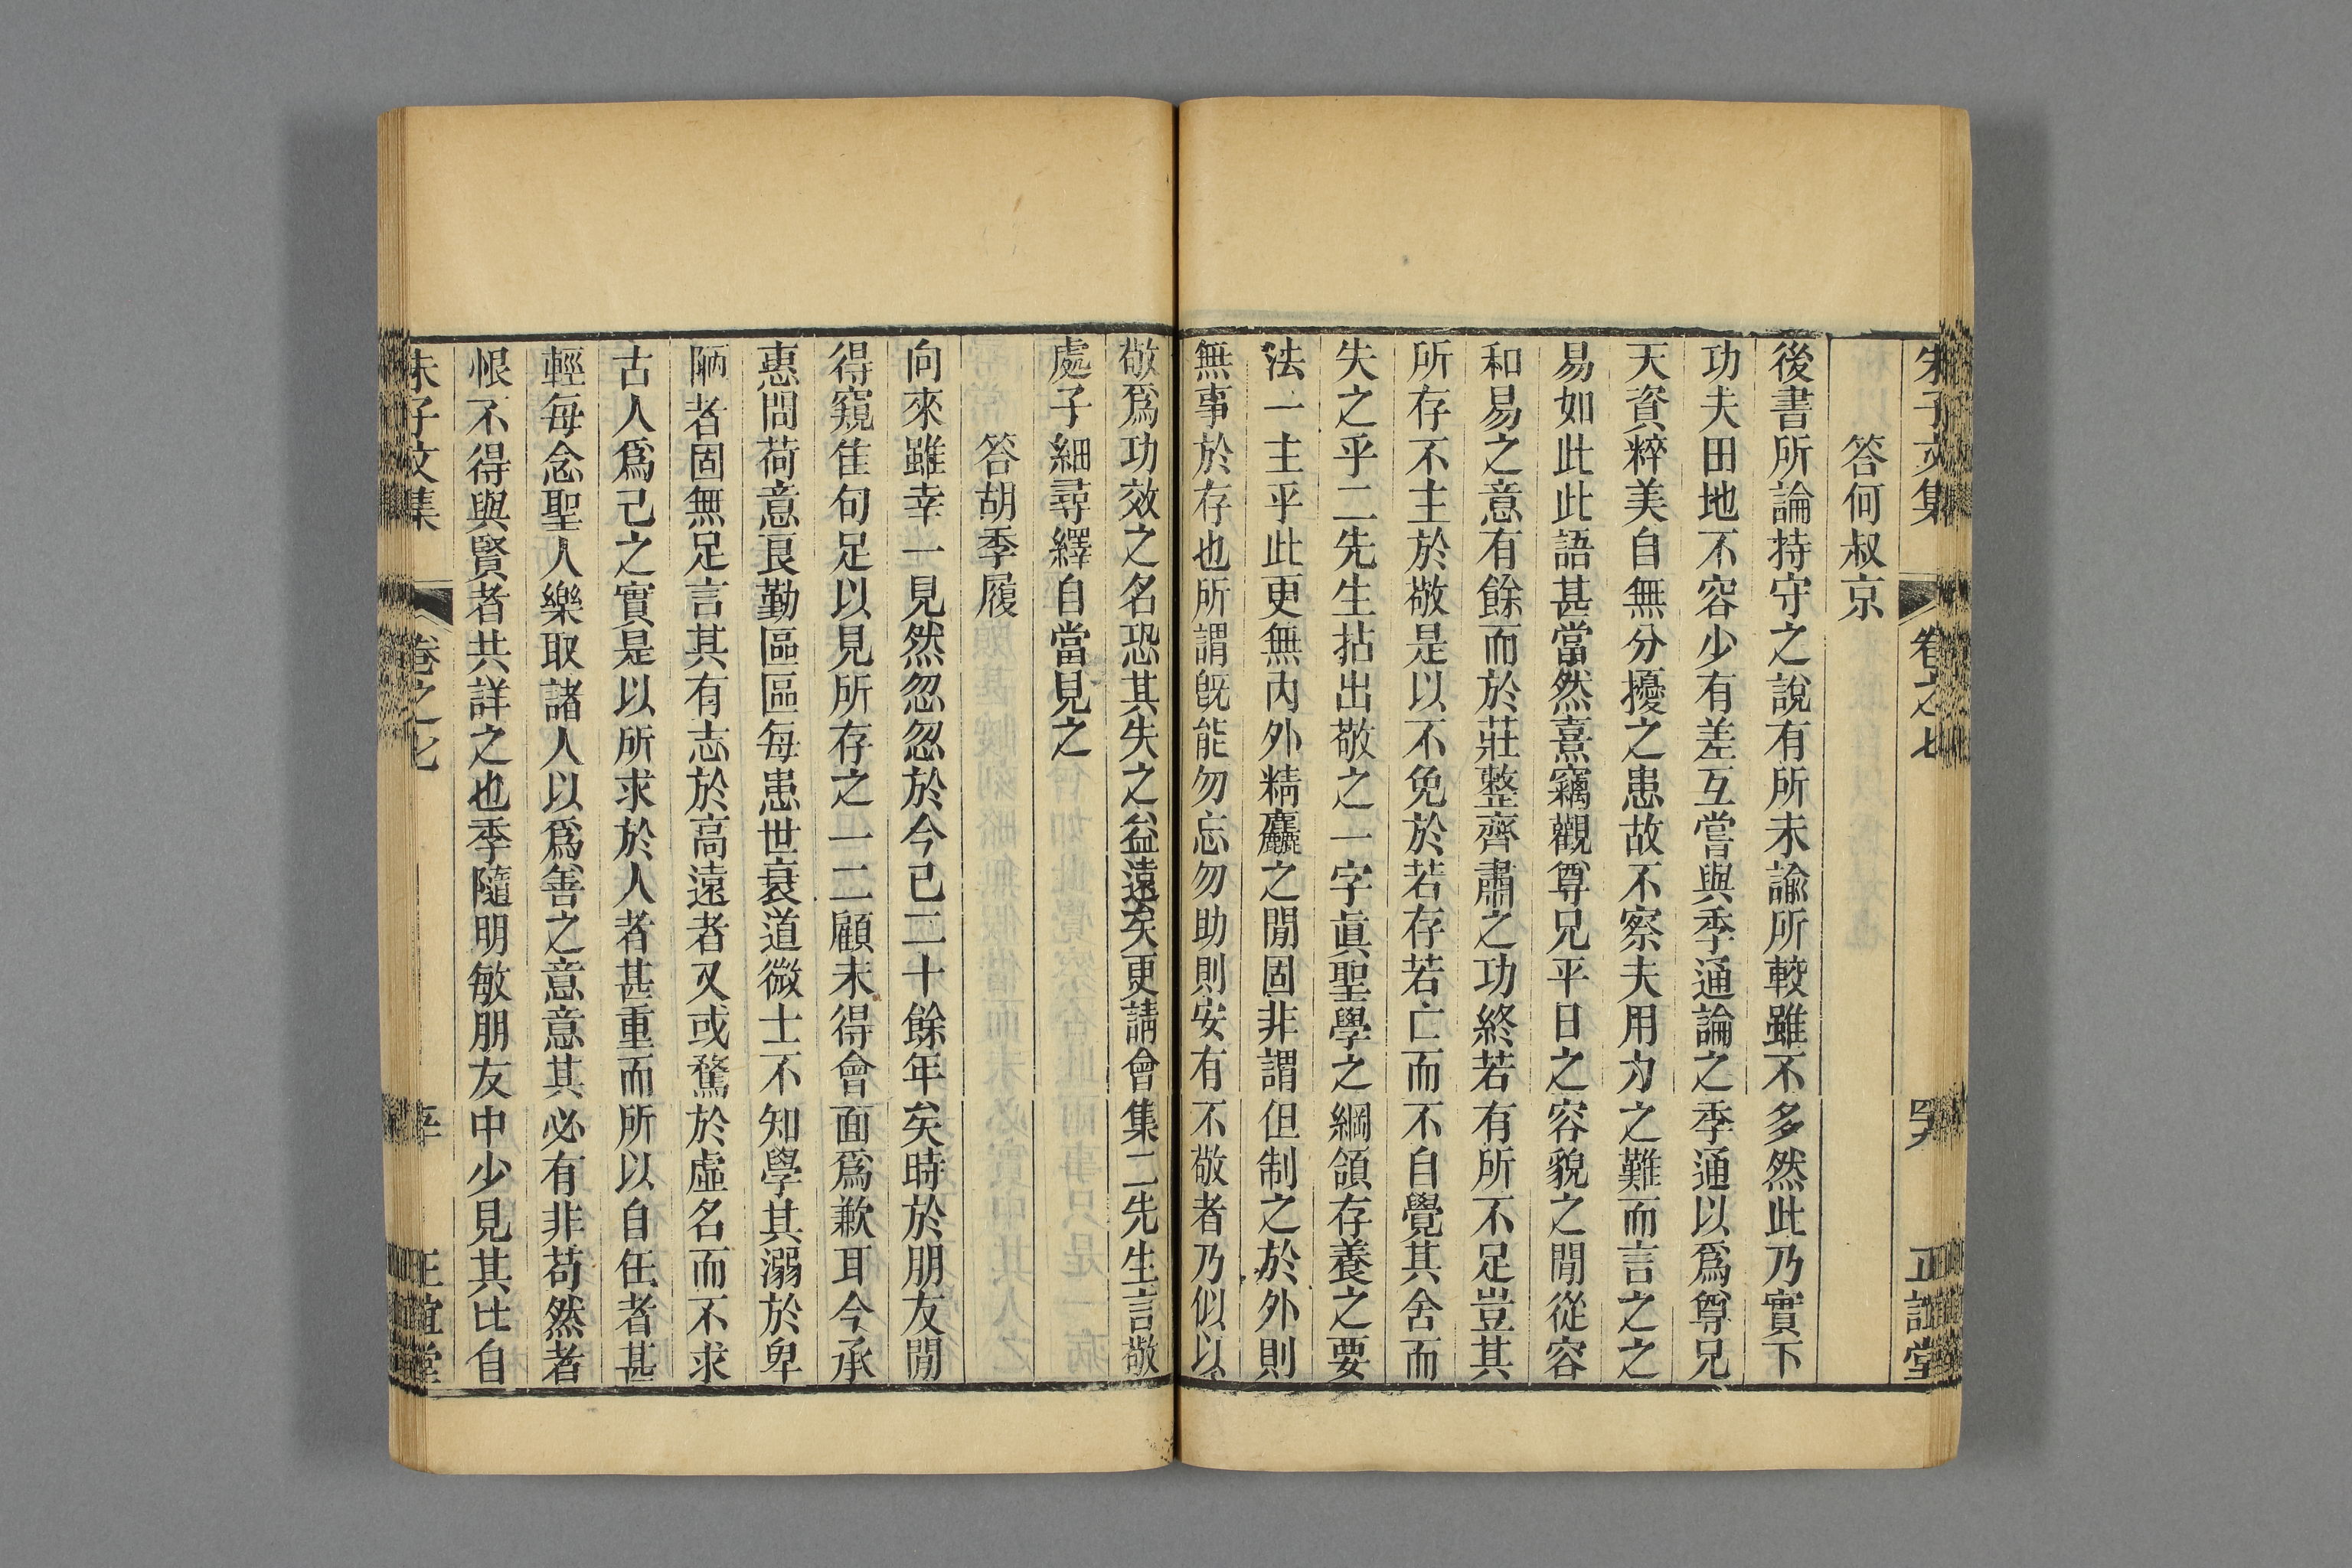 朱子文集 卷之七 正誼堂
答何叔京
後書所論持守之說有所未諭所較雖不多然此乃實下
功夫田地不容少有差互嘗與季通論之季通以爲尊兄
天資粹美自無分擾之患故不察夫用力之難而言之之
易如此此語甚當然熹竊觀尊兄平日之容貌之閒從容
和易之意有餘而於莊整齊肅之功終若有所不足豈其
所存不主於敬是以不免於若存若亡而不自覺其舍而
失之乎二先生拈出敬之一字眞聖學之綱領存養之要
法一主乎此更無內外精麤之閒固非謂但制之於外則
無事於存也所謂旣能勿忘勿助則安有不敬者乃似以
敬爲功效之名恐其失之益遠矣更請會集二先生言敬
處子細尋繹自當見之
答胡季履
向來雖幸一見然忽忽於今已二十餘年矣時於朋友閒
得窺隹句足以見所存之一二顧未得會面爲歉耳今承
惠問荷意良勤區區每患世衰道微士不知學其溺於卑
陋者固無足言其有志於高遠者又或騖於虛名而不求
古人爲己之實是以所求於人者甚重而所以自任者甚
輕每念聖人樂取諸人以爲善之意意其必有非苟然者
恨不得與賢者共詳之也季隨明敏朋友中少見其比自
朱子文集 卷之七 正誼堂